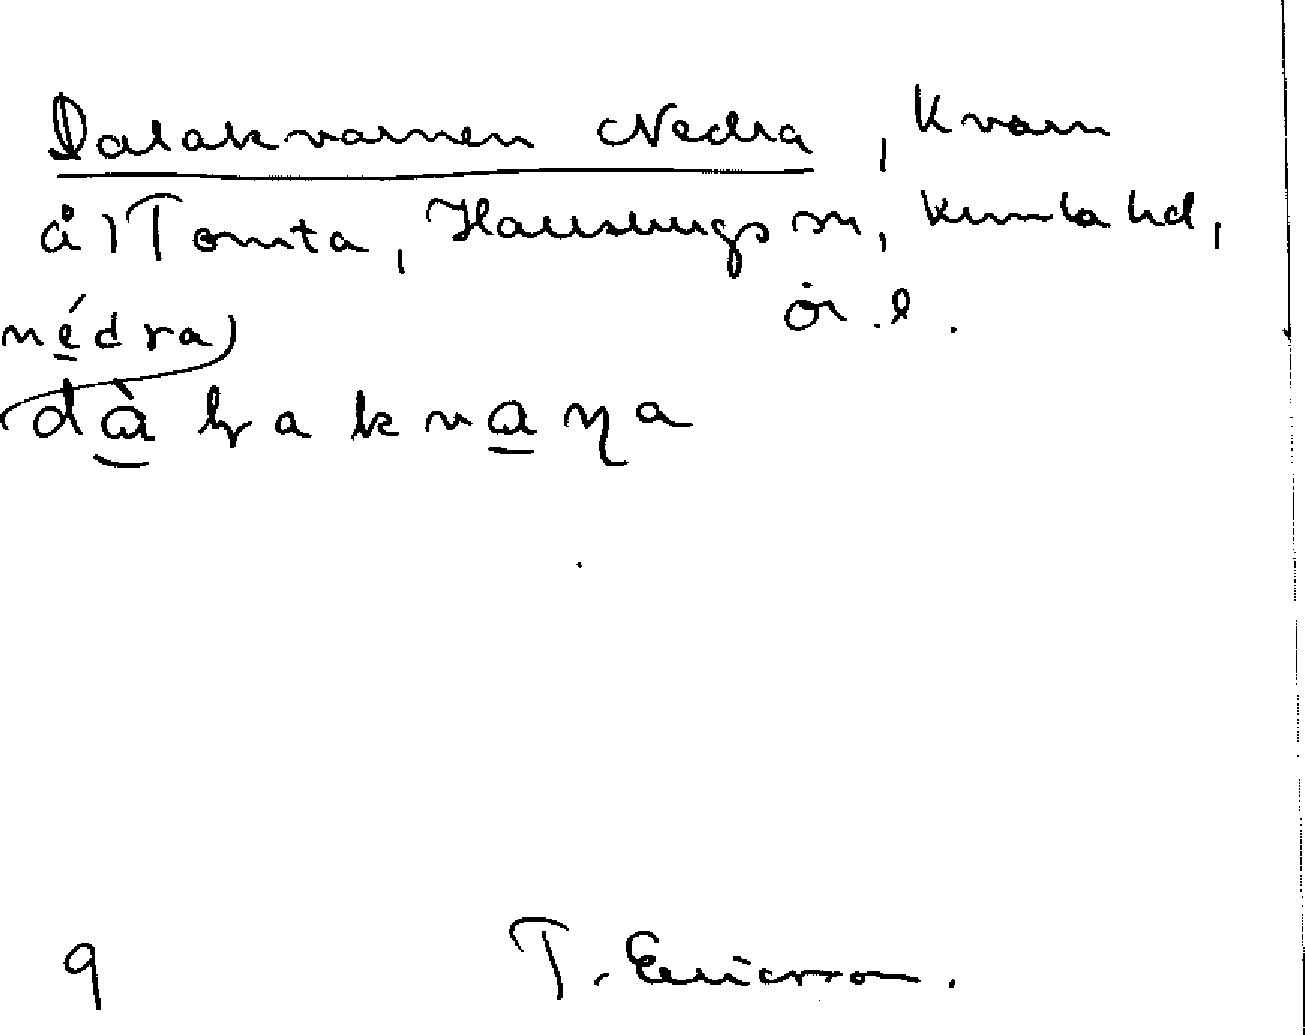 Dalakvarnen Nedra, Kvarn
å 1 Tomta, Hallsbergs sn, Kumla hd,
ör. l.
nédra)
dàlakvaɳa
9 T. Ericsson.